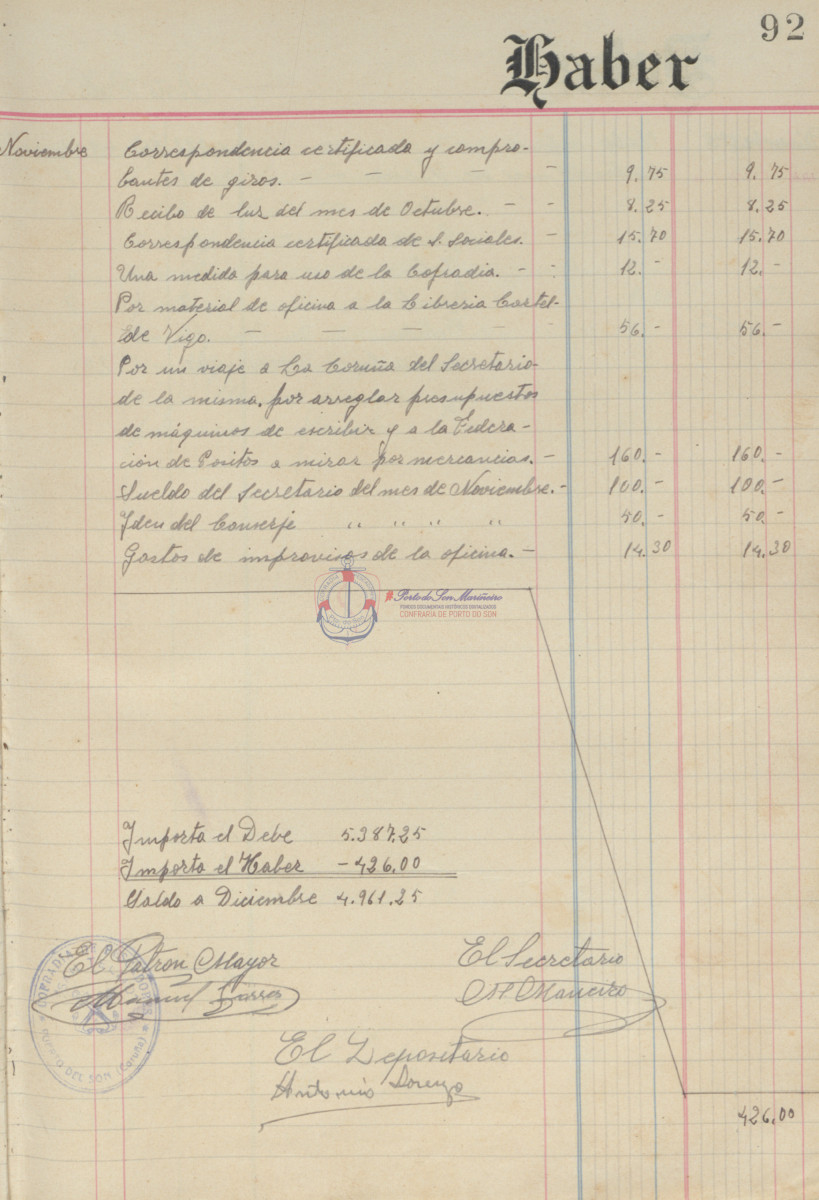 92
Haber
Noviembre Correspondencia certificada y compro-
bantes de giros. - - - - 9.75 9.75
Recibo de luz del mes de Octubre. - - 8.25 8.25
Correspondencia certificada de S. Sociales. - 15.70 15.70
Una medida para uso de la Cofradia. - - 12.- 12.-
Por material de oficina a la Libreria Cartel-
de Vigo. - - - - - 56.- 56.-
Por un viaje a La Coruña del Secretario
de la misma, por arreglar presupuestos
de máquinas de escribir y a la Federa-
ción de Positos a mirar por mercancias. - 160.- 160.-
Sueldo del Secretario del mes de Noviembre. - 100.- 100.-
Idem del Conserje " " " " 50.- 50.-
Gastos de improvisos de la oficina. - 14.30 14.30
Porto do Son Mariñeiro
FONDOS DOCUMENTAIS HISTÓRICOS DIXITALIZADOS
CONFRARIA DE PORTO DO SON
Importa el Debe 5.387.25
Importa el Haber - 426.00
Saldo a Diciembre 4.961.25
El Patron Mayor El Secretario
Manuel M Maneiro
COFRADIA DE PESCADORES
PUERTO DEL SON (Coruña)
El Depositario
Antonio Lorenzo
426.00